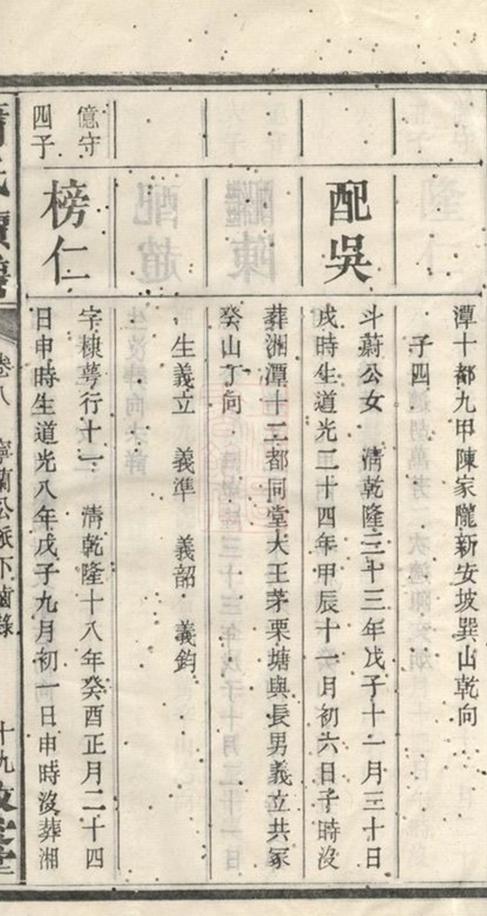 潭十都九甲陳家隴新安坡巽山乾向
子四
配吳
斗蔚公女　清乾隆三十三年戊子十一月三十日
戌時生道光二十四年甲辰十一月初六日子時沒
葬湘潭十三都同堂大王茅栗塘與長男義立共冢
癸山丁向
生義立　義準　義韶　義鈞
億守
四子
榜仁
字棣萼行十一　清乾隆十八年癸酉正月二十四
日申時生道光八年戊子九月初一日申時沒葬湘
卷八
寧蘭公派下齒錄
十九